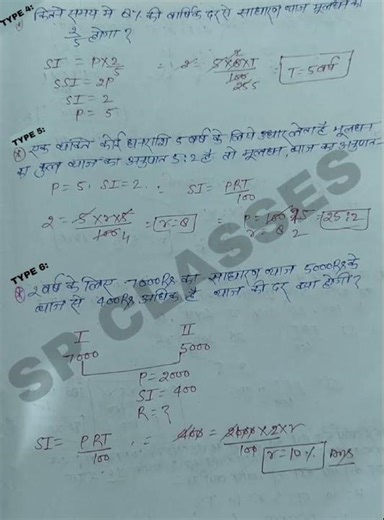 TYPE 4:
कितने समय में 8% की वार्षिक दर से साधारण ब्याज मूलधन का
2/5 होगा ?
SI = P×2/5
5SI = 2P
SI = 2
P = 5
T = 5 वर्ष
TYPE 5:
एक व्यक्ति कोई धनराशि 5 वर्ष के लिये उधार लेता है मूलधन
कुल ब्याज का अनुपात 5:2 है तो मूलधन, ब्याज का अनुपात-
P = 5, SI = 2 SI = PRT/100
2 = 5×r×5/100 4 = r = 8 P = 100 25 = 25:2
r = 8 2
TYPE 6:
2 वर्ष के लिए 7000Rs का साधारण ब्याज 5000Rs के
ब्याज से 400Rs अधिक है ब्याज की दर क्या होगी ?
I II
7000 5000
P = 2000
SI = 400
R = ?
SI = PRT/100 ∴ = 400 = 2000×2×r/100 r = 10% Ans
SP CLASSES